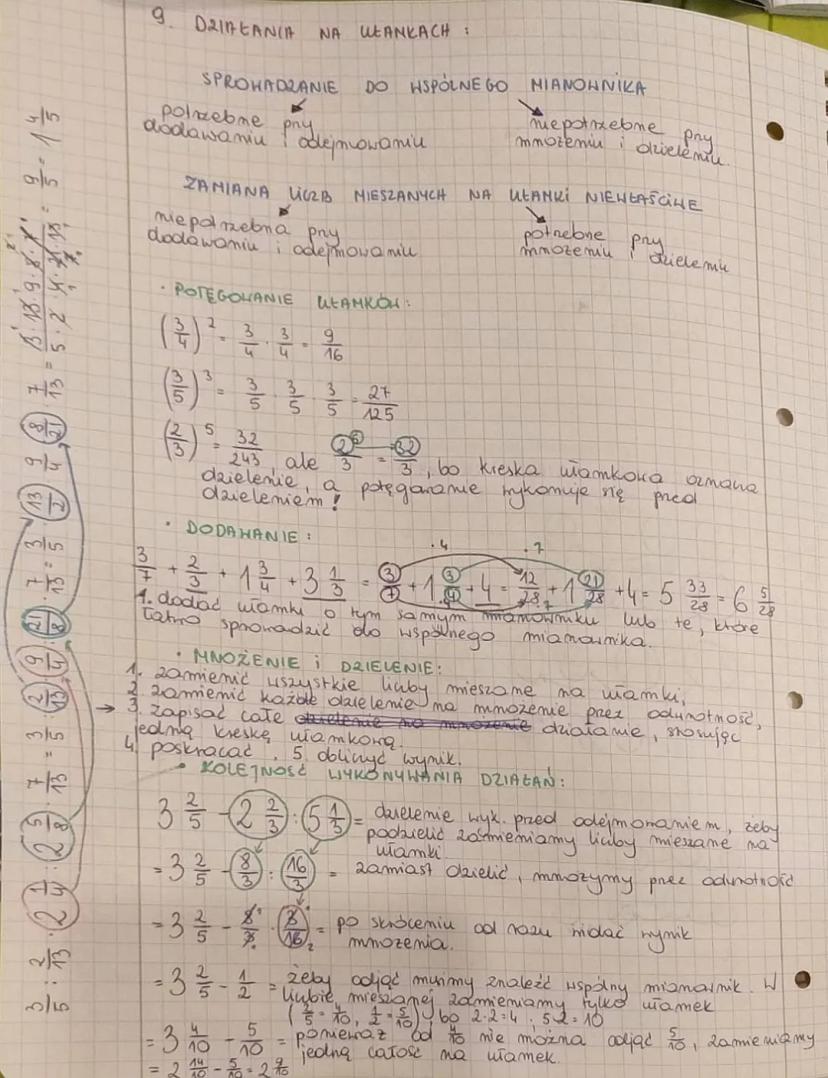 9. DZIAŁANIA NA UŁAMKACH :
SPROWADZANIE DO WSPÓLNEGO MIANOWNIKA
potrzebne przy dodawaniu i odejmowaniu
niepotrzebne przy mnożeniu i dzieleniu.
ZAMIANA LICZB MIESZANYCH NA UŁAMKI NIEWŁAŚCIWE
niepotrzebna przy dodawaniu i odejmowaniu
potrzebne przy mnożeniu i dzieleniu
· POTĘGOWANIE UŁAMKÓW:
(3/4)² = 3/4 · 3/4 = 9/16
(3/5)³ = 3/5 · 3/5 · 3/5 = 27/125
(2/3)⁵ = 32/243, ale 2⁵/3 = 32/3, bo kreska ułamkowa oznacza
dzielenie, a potęgowanie wykonuje się przed
dzieleniem!
· DODAWANIE :
3/7 + 2/3 + 1 3/4 + 3 1/3 = 3/7 + 1 3/4 + 4 = 12/28 + 1 21/28 + 4 = 5 33/28 = 6 5/28
·4 ·7
1. dodać ułamki o tym samym mianowniku lub te, które
łatwo sprowadzić do wspólnego mianownika.
· MNOŻENIE i DZIELENIE:
1. zamienić wszystkie liczby mieszane na ułamki,
2. zamienić każde dzielenie na mnożenie przez odwrotność,
→ 3. zapisać całe dzielenie na mnożenie działanie, stosując
jedną kreskę ułamkową.
4. poskracać. 5. obliczyć wynik.
· KOLEJNOŚĆ WYKONYWANIA DZIAŁAŃ:
3 2/5 - 2 2/3 : 5 1/3 = dzielenie wyk. przed odejmowaniem, żeby
podzielić zamieniamy liczby mieszane na
ułamki
= 3 2/5 - 8/3 : 16/3 = zamiast dzielić, mnożymy przez odwrotność
= 3 2/5 - 8/3 · 3/16 = po skróceniu od razu widać wynik
mnożenia.
= 3 2/5 - 1/2 = żeby odjąć musimy znaleźć wspólny mianownik. W
liczbie mieszanej zamieniamy tylko ułamek
(2/5 = 4/10, 1/2 = 5/10), bo 2·2=4, 5·2=10
= 3 4/10 - 5/10 = ponieważ od 4/10 nie można odjąć 5/10, zamieniamy
jedną całość na ułamek.
= 2 14/10 - 5/10 = 2 9/10